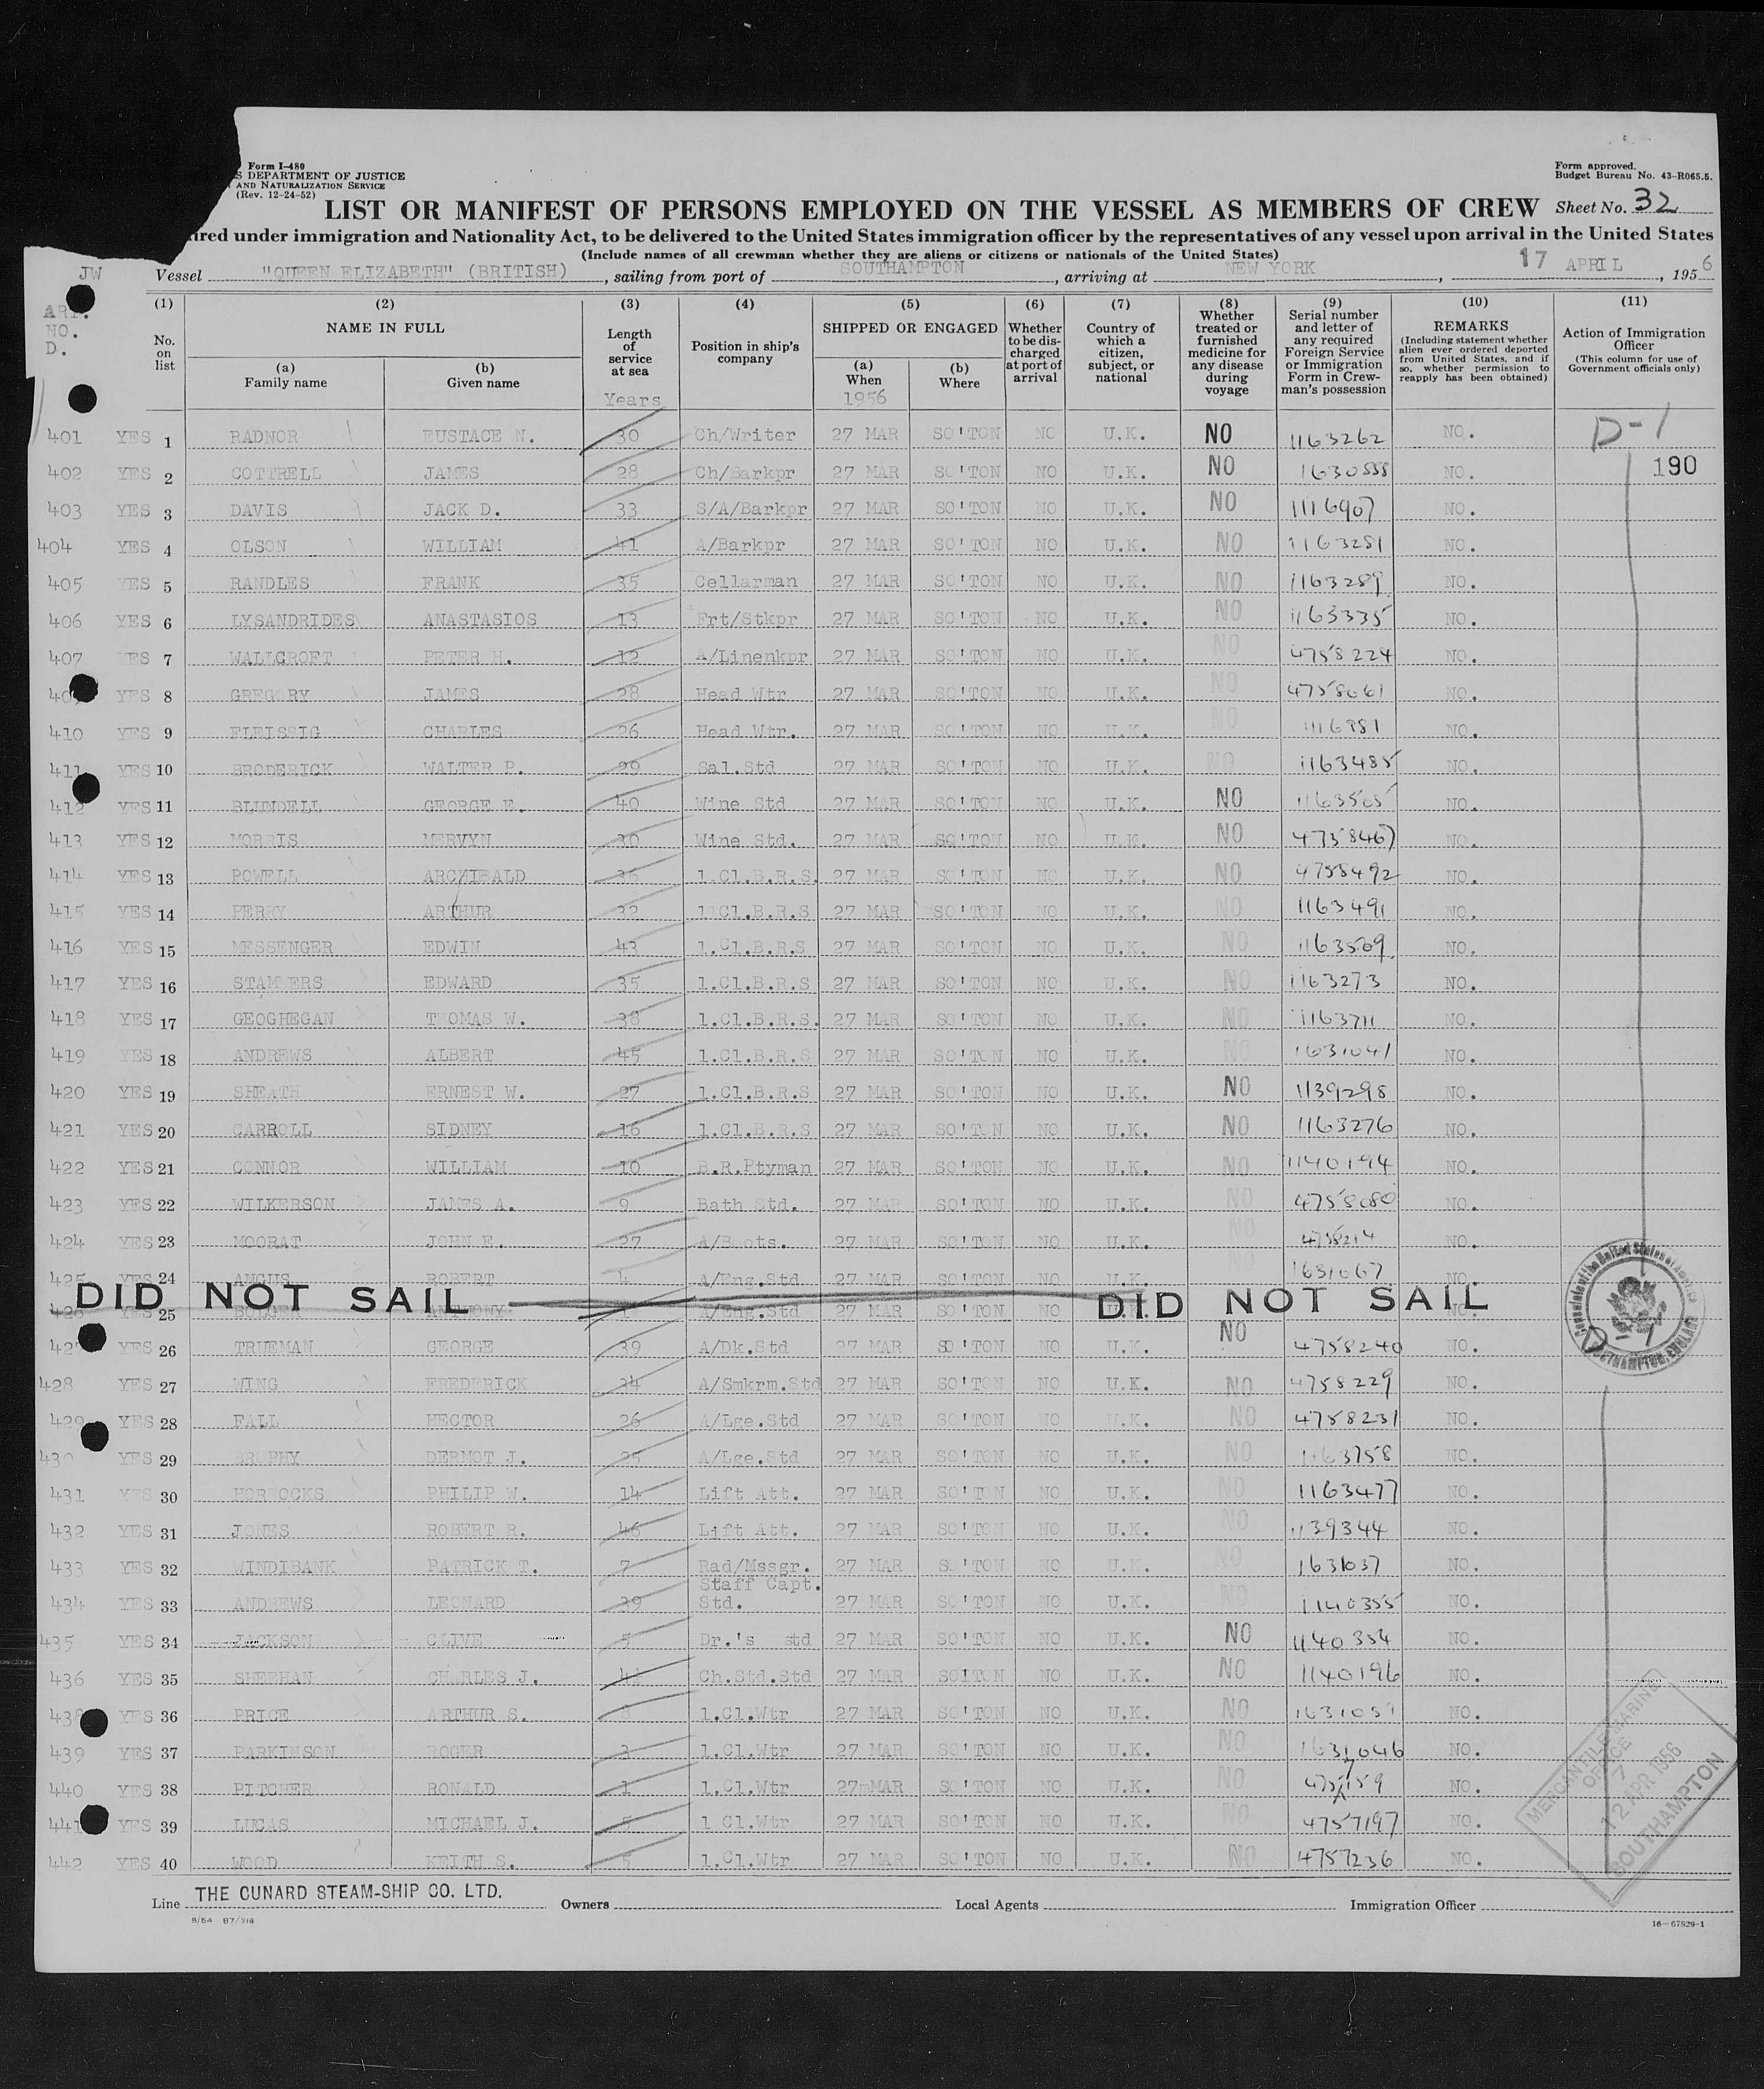 Form I-480
S DEPARTMENT OF JUSTICE
AND NATURALIZATION SERVICE
(Rev. 12-24-52)
Form approved.
Budget Bureau No. 43-R065.5.
LIST OR MANIFEST OF PERSONS EMPLOYED ON THE VESSEL AS MEMBERS OF CREW Sheet No. 32
ired under immigration and Nationality Act, to be delivered to the United States immigration officer by the representatives of any vessel upon arrival in the United States
(Include names of all crewman whether they are aliens or citizens or nationals of the United States)
JW Vessel "QUEEN ELIZABETH" (BRITISH), sailing from port of SOUTHAMPTON, arriving at NEW YORK, 17 APRIL, 1956
ART.
NO.
D.
(1) No. on list
(2) NAME IN FULL (a) Family name (b) Given name
(3) Length of service at sea Years
(4) Position in ship's company
(5) SHIPPED OR ENGAGED (a) When 1956 (b) Where
(6) Whether to be discharged at port of arrival
(7) Country of which a citizen, subject, or national
(8) Whether treated or furnished medicine for any disease during voyage
(9) Serial number and letter of any required Foreign Service or Immigration Form in Crewman's possession
(10) REMARKS (Including statement whether alien ever ordered deported from United States, and if so, whether permission to reapply has been obtained)
(11) Action of Immigration Officer (This column for use of Government officials only)
401 YES 1 RADNOR EUSTACE N. 30 Ch/Writer 27 MAR SO'TON NO U.K. NO 1163262 NO. D-1
402 YES 2 COTTRELL JAMES 28 Ch/Barkpr 27 MAR SO'TON NO U.K. NO 1630555 NO. 190
403 YES 3 DAVIS JACK D. 33 S/A/Barkpr 27 MAR SO'TON NO U.K. NO 1116907 NO.
404 YES 4 OLSON WILLIAM 41 A/Barkpr 27 MAR SO'TON NO U.K. NO 1163281 NO.
405 YES 5 RANDLES FRANK 35 Cellarman 27 MAR SO'TON NO U.K. NO 1163289 NO.
406 YES 6 LYSANDRIDES ANASTASIOS 13 Frt/Stkpr 27 MAR SO'TON NO U.K. NO 1163335 NO.
407 YES 7 WALLCROFT PETER H. 12 A/Linenkpr 27 MAR SO'TON NO U.K. NO 4758224 NO.
YES 8 GREGORY JAMES 28 Head Wtr 27 MAR SO'TON NO U.K. NO 4758061 NO.
410 YES 9 FLEISSIG CHARLES 26 Head Wtr. 27 MAR SO'TON NO U.K. NO 1116981 NO.
411 YES 10 BRODERICK WALTER P. 29 Sal.Std 27 MAR SO'TON NO U.K. NO 1163485 NO.
412 YES 11 BLUNDELL GEORGE E. 40 Wine Std 27 MAR SO'TON NO U.K. NO 1163505 NO.
413 YES 12 MORRIS MERVYN 30 Wine Std. 27 MAR SO'TON NO U.K. NO 4758467 NO.
414 YES 13 POWELL ARCHIBALD 35 1.Cl.B.R.S. 27 MAR SO'TON NO U.K. NO 4758492 NO.
415 YES 14 PERRY ARTHUR 32 1 Cl.B.R.S 27 MAR SO'TON NO U.K. NO 1163491 NO.
416 YES 15 MESSENGER EDWIN 43 1.Cl.B.R.S 27 MAR SO'TON NO U.K. NO 1163509 NO.
417 YES 16 STAMMERS EDWARD 35 1.Cl.B.R.S 27 MAR SO'TON NO U.K. NO 1163273 NO.
418 YES 17 GEOGHEGAN THOMAS W. 38 1.Cl.B.R.S. 27 MAR SO'TON NO U.K. NO 1163711 NO.
419 YES 18 ANDREWS ALBERT 45 1.Cl.B.R.S 27 MAR SO'TON NO U.K. NO 1631041 NO.
420 YES 19 SHEATH ERNEST W. 27 1.Cl.B.R.S 27 MAR SO'TON NO U.K. NO 1139298 NO.
421 YES 20 CARROLL SIDNEY 16 1.Cl.B.R.S 27 MAR SO'TON NO U.K. NO 1163276 NO.
422 YES 21 CONNOR WILLIAM 10 B.R.Ptyman 27 MAR SO'TON NO U.K. NO 1140194 NO.
423 YES 22 WILKERSON JAMES A. 9 Bath Std. 27 MAR SO'TON NO U.K. NO 4758080 NO.
424 YES 23 MOORAT JOHN E. 27 A/Boots. 27 MAR SO'TON NO U.K. NO 4758214 NO.
425 YES 24 ANGUS ROBERT 4 A/Eng.Std 27 MAR SO'TON NO U.K. NO 1631067 NO.
DID NOT SAIL DID NOT SAIL
426 YES 25 BOLGER ANTHONY A/Eng.Std 27 MAR SO'TON NO U.K. NO.
YES 26 TRUEMAN GEORGE 39 A/Dk.Std 27 MAR SO'TON NO U.K. NO 4758240 NO. D-1
428 YES 27 WING FREDERICK 34 A/Smkrm.Std 27 MAR SO'TON NO U.K. NO 4758229 NO.
429 YES 28 FALL HECTOR 26 A/Lge.Std 27 MAR SO'TON NO U.K. NO 4758231 NO.
430 YES 29 BROPHY DERMOT J. 25 A/Lge.Std 27 MAR SO'TON NO U.K. NO 1163758 NO.
431 YES 30 HORROCKS PHILIP W. 14 Lift Att. 27 MAR SO'TON NO U.K. NO 1163477 NO.
432 YES 31 JONES ROBERT R. 46 Lift Att. 27 MAR SO'TON NO U.K. NO 1139344 NO.
433 YES 32 WINDIBANK PATRICK T. 7 Rad/Mssgr. 27 MAR SO'TON NO U.K. NO 1631037 NO.
434 YES 33 ANDREWS LEONARD 39 Staff Capt. Std. 27 MAR SO'TON NO U.K. NO 1140355 NO.
435 YES 34 JACKSON CLIVE 5 Dr.'s std 27 MAR SO'TON NO U.K. NO 1140354 NO.
436 YES 35 SHEEHAN CHARLES J. 41 Ch.Std.Std 27 MAR SOITON NO U.K. NO 1140196 NO.
438 YES 36 PRICE ARTHUR S. 1.Cl.Wtr 27 MAR SO'TON NO U.K. NO 1631051 NO.
439 YES 37 PARKINSON ROGER 3 1.Cl.Wtr 27 MAR SO'TON NO U.K. NO 1631046 NO.
440 YES 38 PITCHER RONALD 1 1.Cl.Wtr 27mMAR SO'TON NO U.K. NO 4757159 NO.
441 YES 39 LUCAS MICHAEL J. 5 1 Cl.Wtr 27 MAR SO'TON NO U.K. NO 4757197 NO.
442 YES 40 WOOD KEITH S. 5 1.Cl.Wtr 27 MAR SO'TON NO U.K. NO 4757236 NO.
MERCANTILE MARINE OFFICE
7
12 APR 1956
SOUTHAMPTON
Line THE CUNARD STEAM-SHIP CO. LTD. Owners Local Agents Immigration Officer
8/54 B7/918
16-67829-1